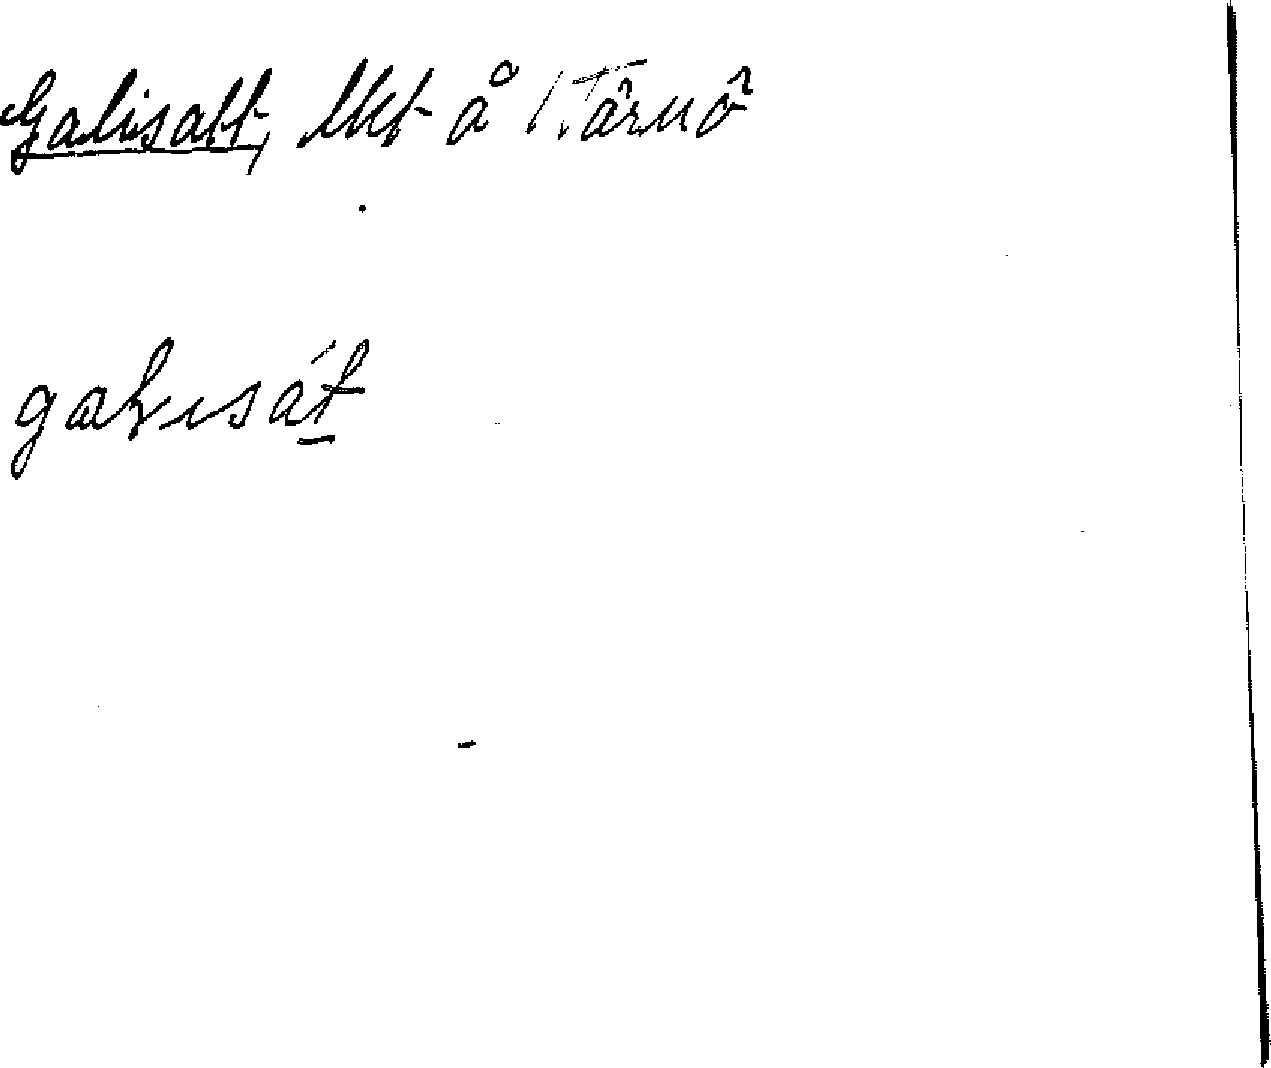 Galisatt, lkt å Tärnö
galısát